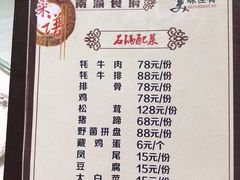 菜谱
石锅配菜
牦牛肉 78元/份
牦牛排 88元/份
排骨 78元/份
鸡 78元/份
松茸 128元/份
猪蹄 68元/份
野菌拼盘 88元/份
藏鸡蛋 6元/个
凤尾 15元/份
豆腐 15元/份
大白菜 15元/份